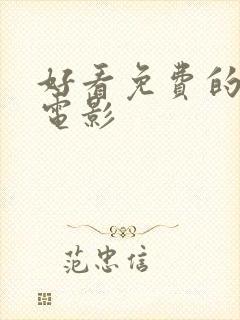 好看免费的
電影
范忠信